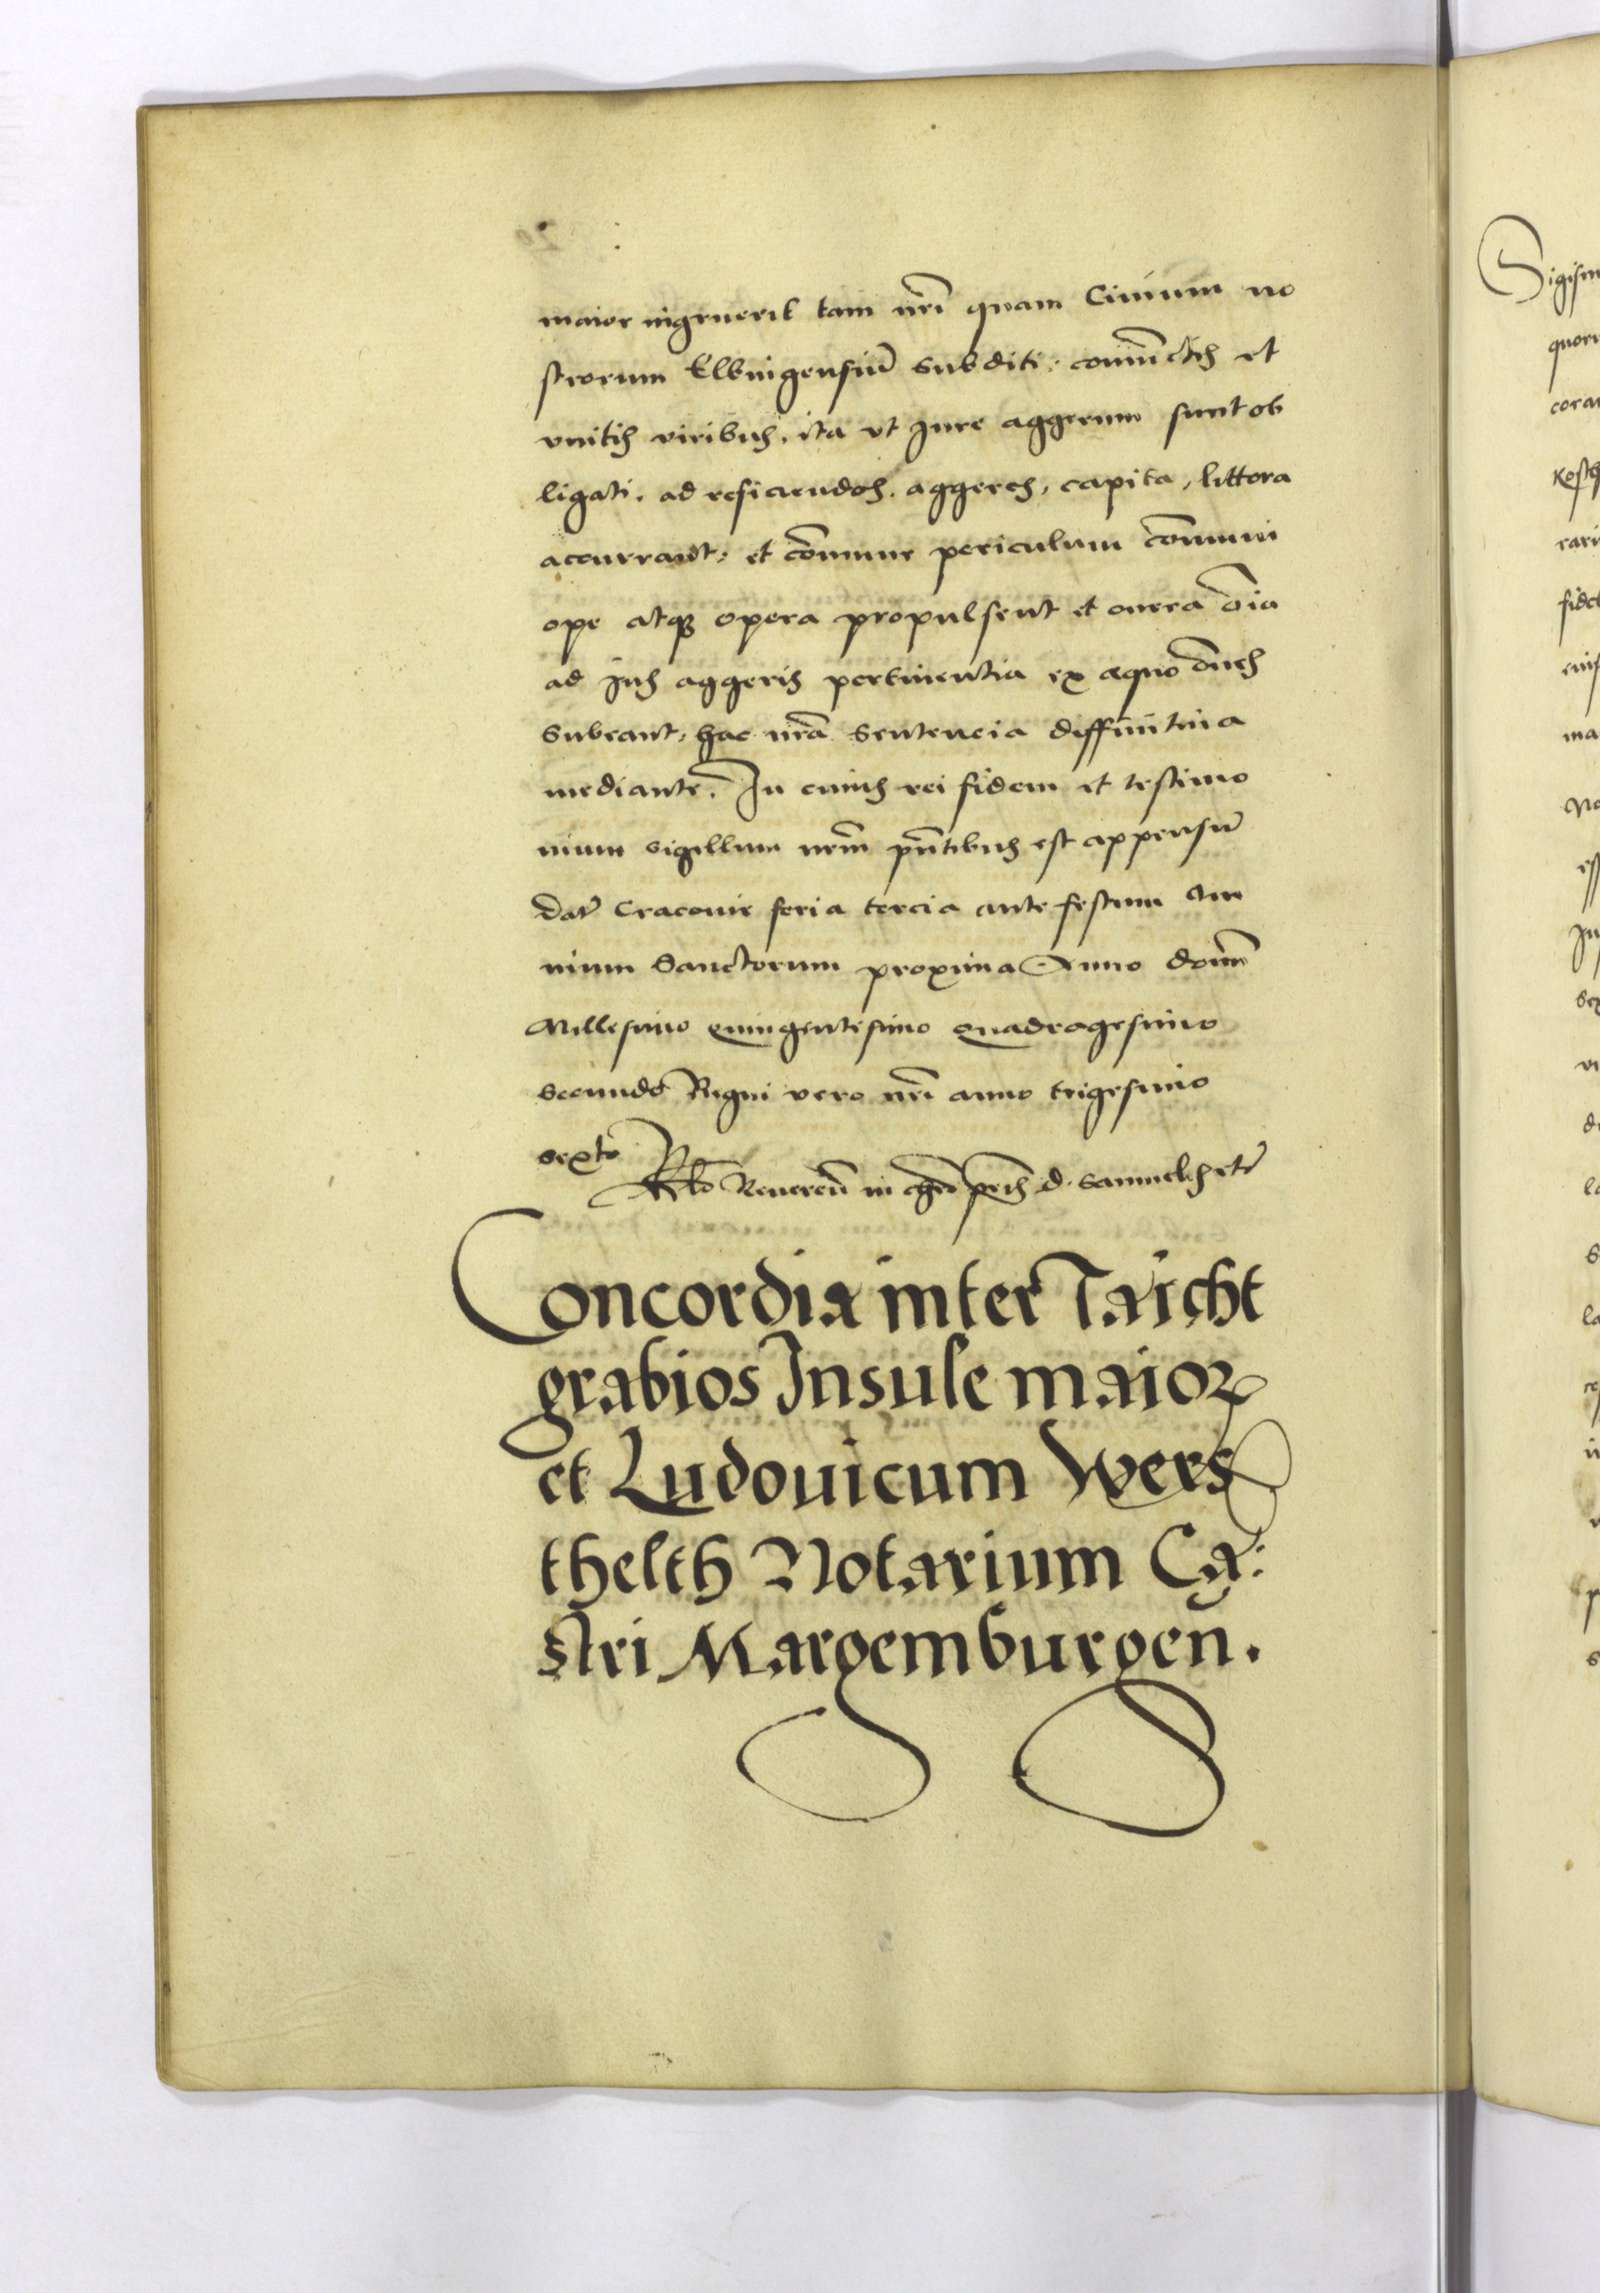 maior ingruerit tam nr̃i quam Ciuium no
strorum Elbingensiũ subditi, coniũctis et
vnitis viribus, ita vt Jure aggerum sunt ob
ligati, ad reficiendos, aggeres, capita, littora
accurrant, et cõmune periculum cõmuni
ope atqꝫ opera propulsent et onera õia
ad Jus aggeris pertinentia ex aequo õnes
subeant, hac nr̃a sentencia diffinitiua
mediante. In cuius rei fidem et testimo
nium sigillum nr̃m pñtibus est appensũ
dat̃ Cracouie feria tercia ante festum om
nium Sanctorum proxima Anno domĩ
Millesimo quingentesimo quadragesimo
secundo Regni vero nr̃i anno trigesimo
sexto
Rlõ Reuereñ in chr̃o pr̃is d. Samuelis etc̃
Concordia inter Taicht
grabios Insule maioꝝ
et Ludouicum Wers
thelth Notarium Ca:
stri Margemburgen.
Sigism
quor
cora
fide
ma